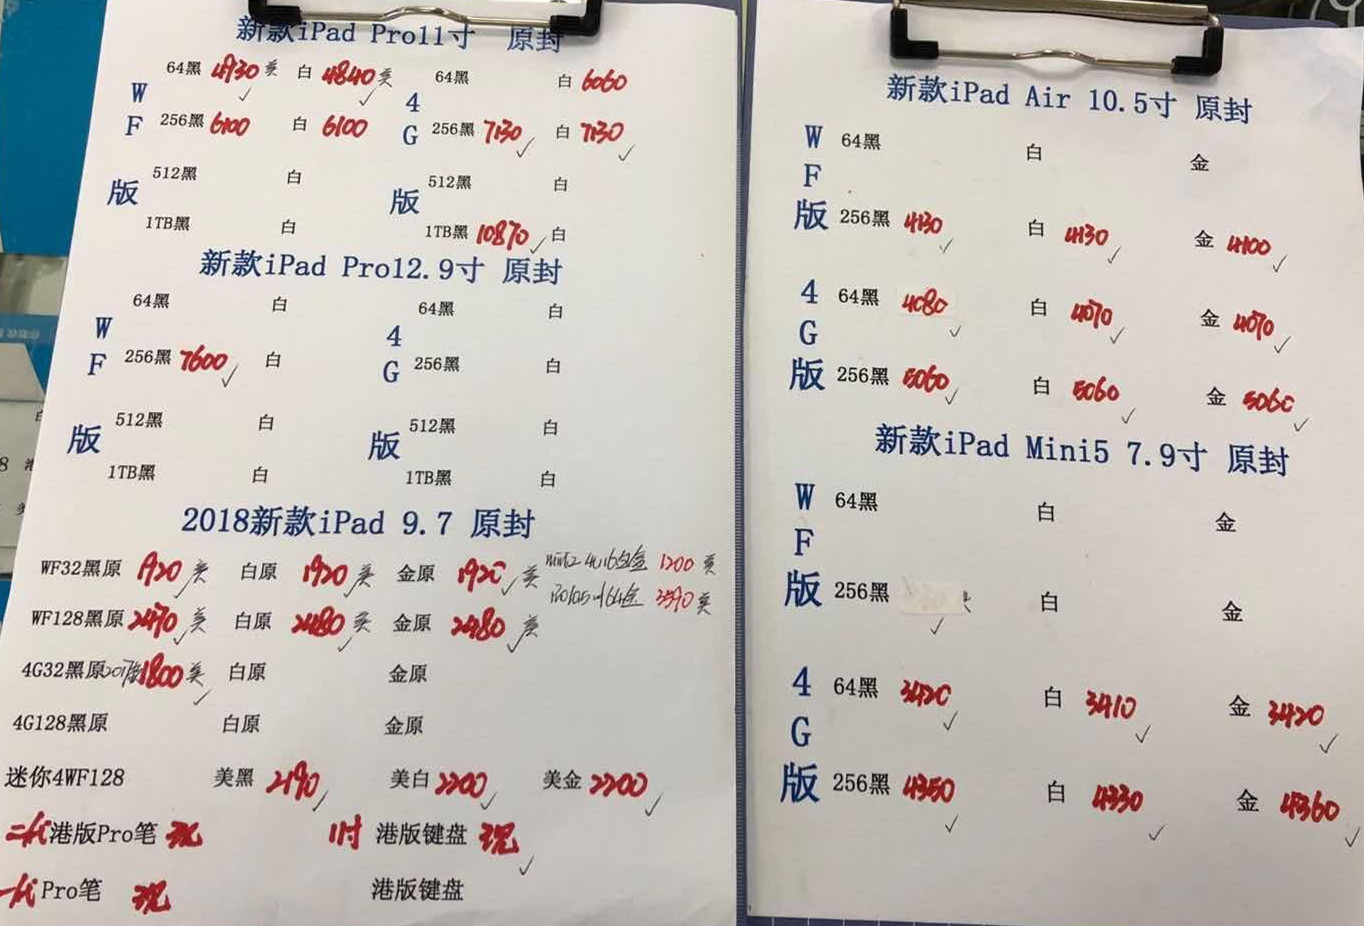 新款iPad Pro11寸 原封
W 64黑 4930美 白 4840美 4 64黑 白 6060
F 256黑 6100 白 6100 G 256黑 7130 白 7130
版 512黑 白 版 512黑 白
1TB黑 白 1TB黑 10870 白
新款iPad Pro12.9寸 原封
W 64黑 白 4 64黑 白
F 256黑 7600 白 G 256黑 白
版 512黑 白 版 512黑 白
1TB黑 白 1TB黑 白
2018新款iPad 9.7 原封
WF32黑原 1920美 白原 1920美 金原 1920美 1200美
3590美
WF128黑原 2470美 白原 2480美 金原 2480美
4G32黑原 1800美 白原 金原
4G128黑原 白原 金原
迷你4WF128 美黑 2190 美白 2200 美金 2200
二代港版Pro笔 现 11寸 港版键盘 现
一代Pro笔 现 港版键盘
新款iPad Air 10.5寸 原封
W 64黑 白 金
F
版 256黑 4130 白 4130 金 4100
4 64黑 4080 白 4070 金 4070
G
版 256黑 5060 白 5060 金 5060
新款iPad Mini5 7.9寸 原封
W 64黑 白 金
F
版 256黑 白 金
4 64黑 3420 白 3410 金 3420
G
版 256黑 4350 白 4330 金 4360